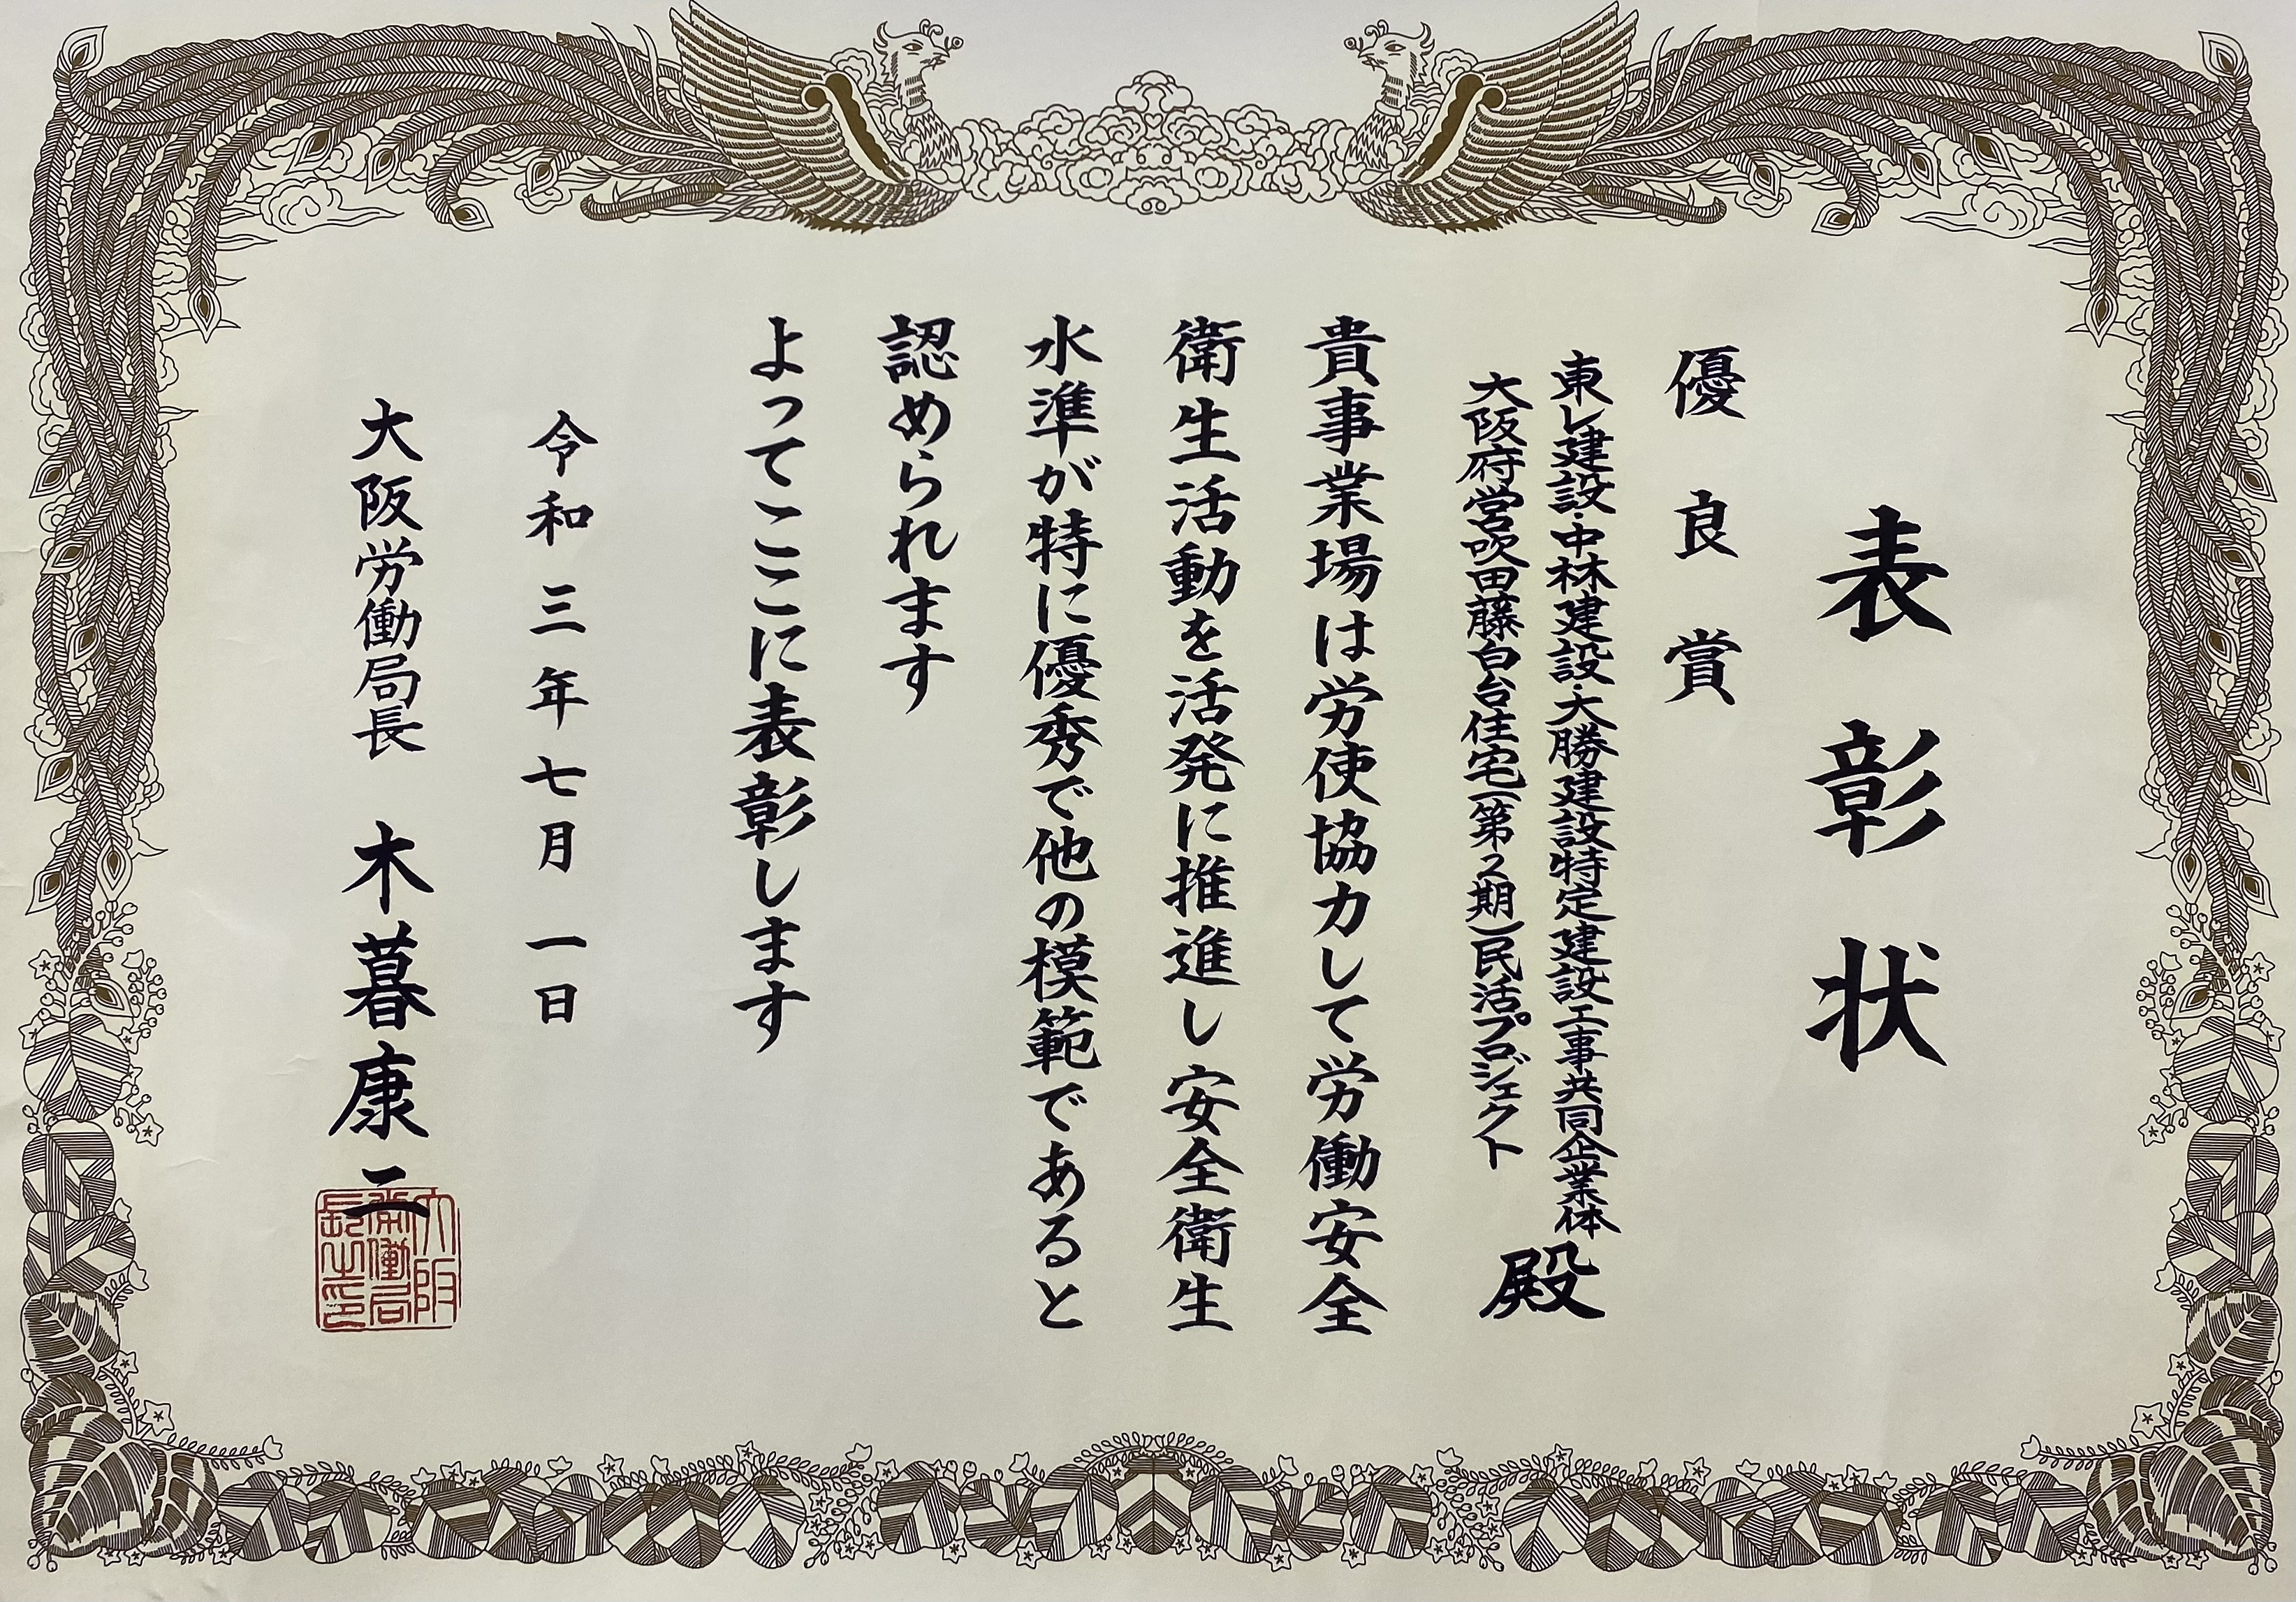 表彰状
優良賞
東レ建設・中林建設・大勝建設特定建設工事共同企業体
大阪府営吹田藤白台住宅(第2期)民活プロジェクト
殿
貴事業場は労使協力して労働安全
衛生活動を活発に推進し安全衛生
水準が特に優秀で他の模範であると
認められます
よってここに表彰します
令和三年七月一日
大阪労働局長 木暮康二
大阪
労働局
長之印